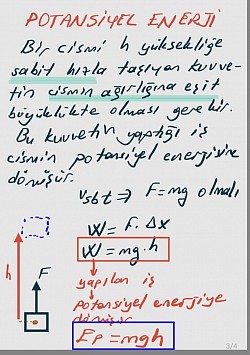 POTANSİYEL ENERJİ
Bir cismi h yüksekliğe
sabit hızla taşıyan kuvve-
tin cismin ağırlığına eşit
büyüklükte olması gerekir.
Bu kuvvetin yaptığı iş
cismin potansiyel enerjisine
dönüşür.
Vsbt ⇒ F=mg olmalı
W = F. Δx
W = mg.h
yapılan iş
potansiyel enerjiye
dönüşür
Ep = mgh
h
F
3/4